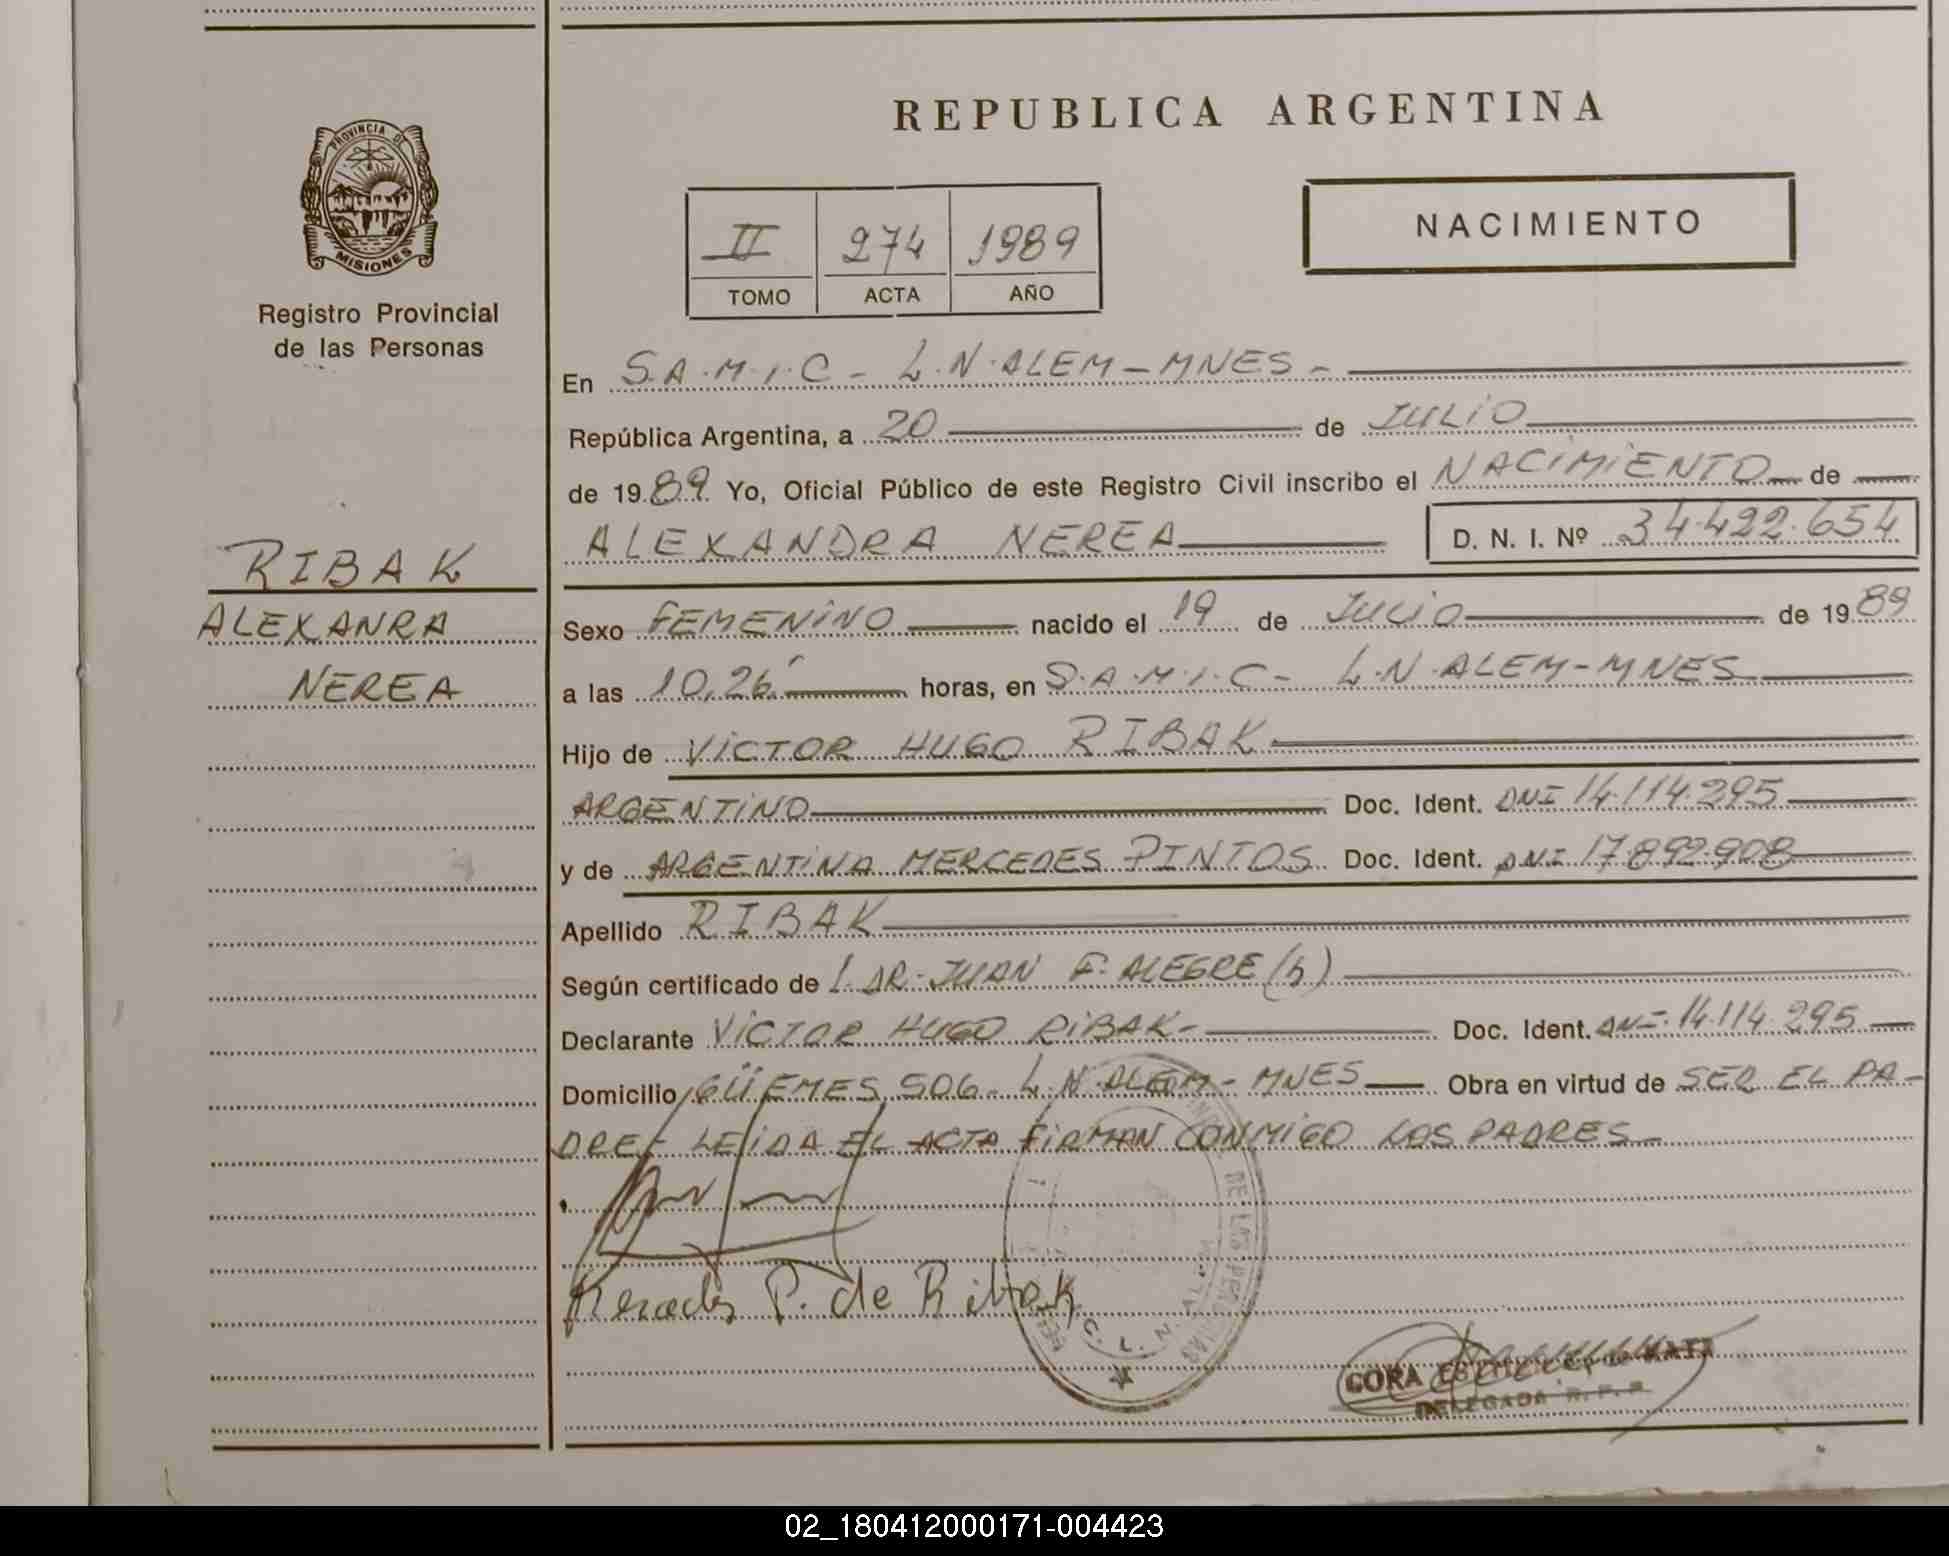 REPUBLICA ARGENTINA
PROVINCIA DE
MISIONES
Registro Provincial
de las Personas
II 274 1989
TOMO ACTA AÑO
NACIMIENTO
RIBAK
ALEXANRA
NEREA
En S.A.M.I.C - L.N.ALEM-MNES -
República Argentina, a 20 de JULIO
de 1989 Yo, Oficial Público de este Registro Civil inscribo el NACIMIENTO de
ALEXANDRA NEREA D. N. I. Nº 34.422.654
Sexo FEMENINO nacido el 19 de JULIO de 1989
a las 10,26 horas, en S.A.M.I.C- L.N.ALEM-MNES
Hijo de VICTOR HUGO RIBAK
ARGENTINO Doc. Ident. DNI 14.114.295
y de ARGENTINA MERCEDES PINTOS Doc. Ident. DNI 17.892.908
Apellido RIBAK
Según certificado de DR. JUAN F. ALEGRE (h)
Declarante VICTOR HUGO RIBAK- Doc. Ident. DNI. 14.114.295
Domicilio GÜEMES 506- L.N.ALEM- MNES Obra en virtud de SER EL PA-
DRE LEIDA EL ACTA FIRMAN CONMIGO LOS PADRES-
P. de Ribak
DE LAS PERSONAS
L. N. ALEM
DELEGADA R. P. P.
02_180412000171-004423